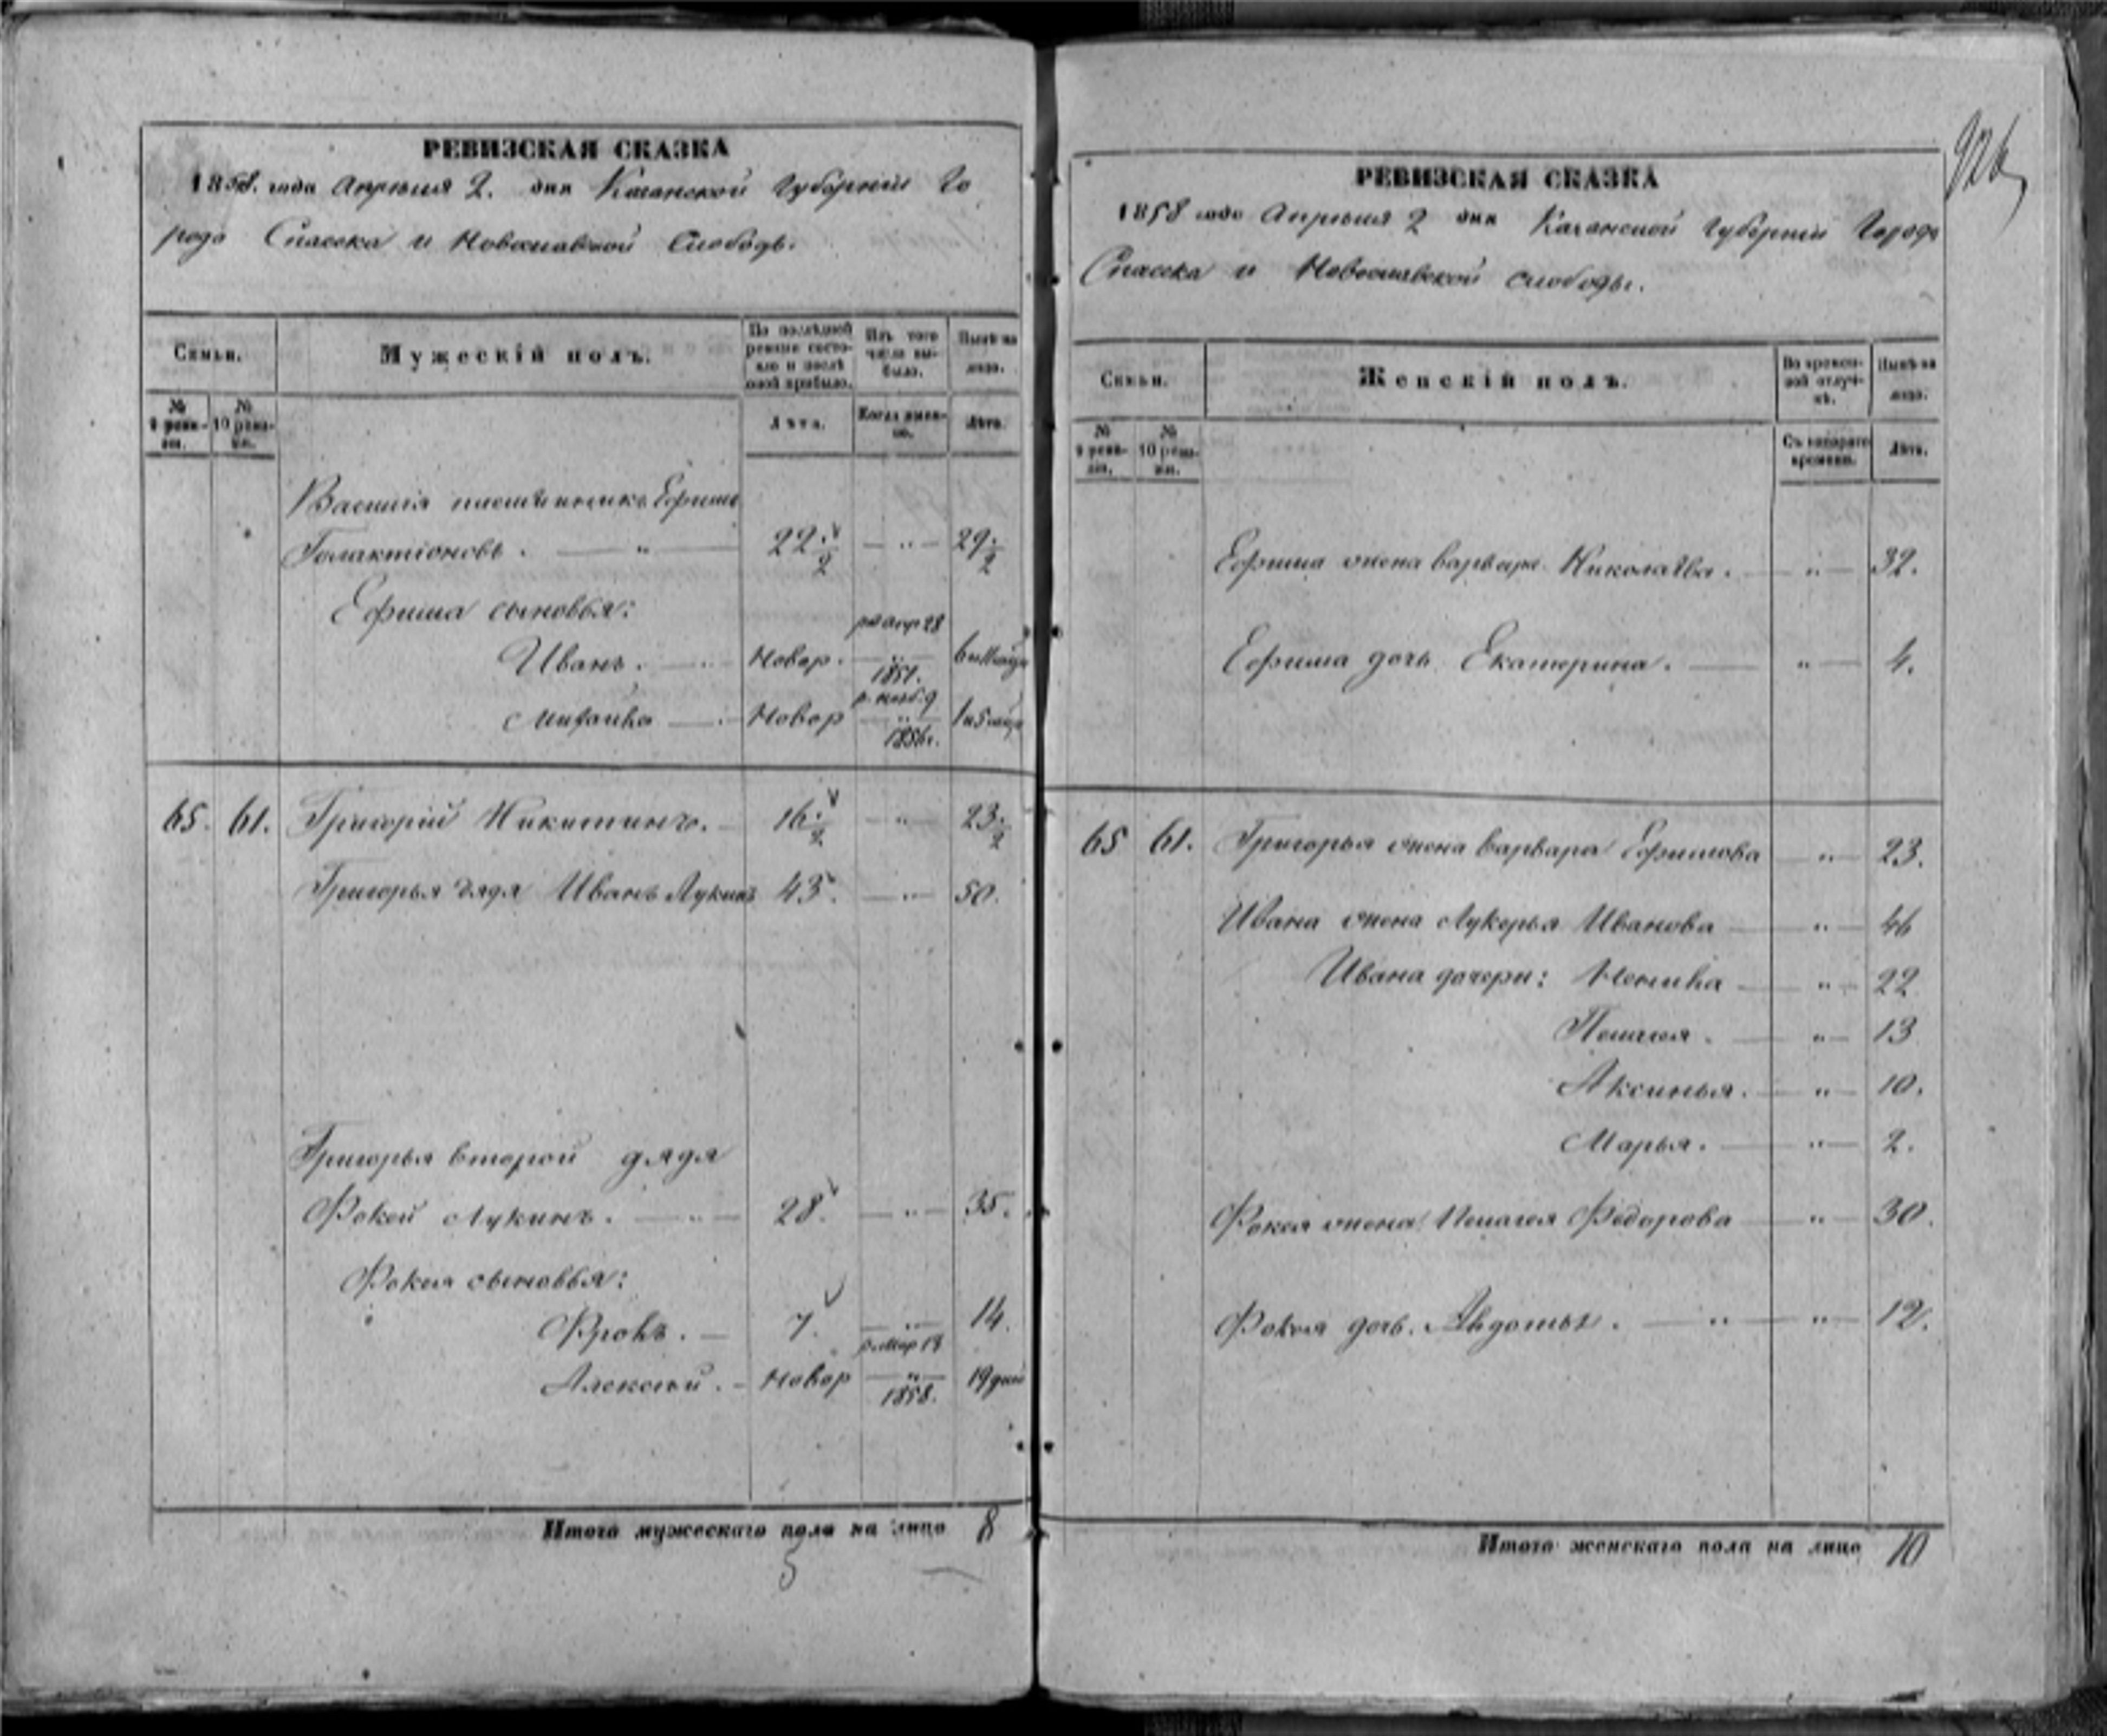 РЕВИЗСКАЯ СКАЗКА
1858. года Апрѣля 2. дня Казанской Губерніи Го
рода Спасска и Новоспавской Слободы.
Семьи.
Мужескій полъ.
По послѣдней ревизіи состояло и послѣ оной прибыло.
Изъ того числа выбыло.
Нынѣ на лицо.
№ 9 ревизіи.
№ 10 ревизіи.
Лѣта.
Когда именно.
Лѣта.
Василія Ефимъ
Галактіоновъ. — " — 22. 2 — " — 29. 2
Ефима сыновья:
Иванъ. Новор. ро апр 28 " 1851. 6
Михайла Новор р. нояб. 9 " 1856г. 1 и 5
65. 61. Григорій Никитинъ. 16. 2 — " — 23. 2
Григорья дядя Иванъ Лукинъ 43. — " — 50.
Григорья второй дядя
Фокей Лукинъ. — " — 28. — " — 35.
Фокея сыновья:
Фролъ. — 7. — " — 14.
Алексей. — Новор р. мар 14 " 1858. 19 дней
Итого мужескаго пола на лицо 8
5
926
РЕВИЗСКАЯ СКАЗКА
1858 года Апрѣля 2 дня Казанской Губерніи Города
Спасска и Новоспавской слободы.
Семьи.
Женскій полъ.
Во временной отлучкѣ.
Нынѣ на лицо.
№ 9 ревизіи.
№ 10 ревизіи.
Съ котораго времени.
Лѣта.
Ефима жена Варвара Николаѣва. — " — 32.
Ефима дочь Екатерина. — " — 4.
65 61. Григорья жена Варвара Ефимова — " — 23.
Ивана жена Лукерья Иванова — " — 46
Ивана дочери: Ненила — " — 22
Пелагея. — " — 13
Аксинья. — " — 10.
Марья. — " — 2.
Фокея жена Пелагея Федорова — " — 30.
Фокея дочь. Авдотья. — " — " — 12.
Итого женскаго пола на лицо 10